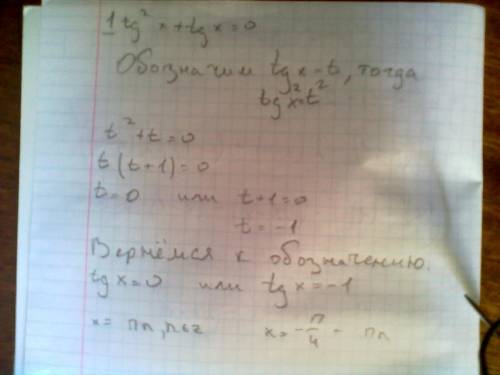 1 tg² x + tg x = 0
Обозначим tg x = t, тогда
tg² x = t²
t² + t = 0
t (t + 1) = 0
t = 0 или t + 1 = 0
t = -1
Вернёмся к обозначению.
tg x = 0 или tg x = -1
x = πn, n∈z x = -π/4 - πn